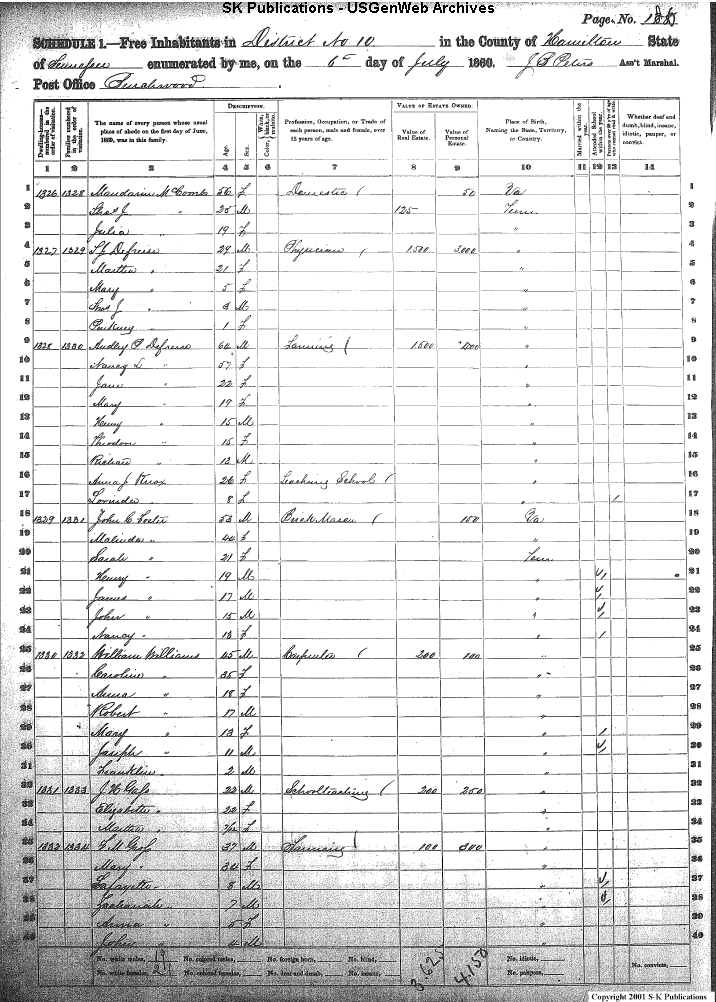 SK Publications - USGenWeb Archives
Page. No.
SCHEDULE 1.—Free Inhabitants in District No 10 in the County of Hamilton State
of Tennessee enumerated by me, on the 6th day of July 1860. J B Peters Ass't Marshal.
Post Office
DESCRIPTION. VALUE OF ESTATE OWNED.
Dwelling-houses—numbered in the order of visitation. Families numbered in the order of visitation. The name of every person whose usual place of abode on the first day of June, 1860, was in this family. Age. Sex. Color, White, black, or mulatto. Profession, Occupation, or Trade of each person, male and female, over 15 years of age. Value of Real Estate. Value of Personal Estate. Place of Birth, Naming the State, Territory, or Country. Married within the year. Attended School within the year. Persons over 20 years of age who cannot read & write. Whether deaf and dumb, blind, insane, idiotic, pauper, or convict.
1 2 3 4 5 6 7 8 9 10 11 12 13 14
1 1326 1328 McCombs 56 f Domestic 50 Va 1
2 Thos J. " 25 M 125 Tenn 2
3 Julia " 19 f " 3
4 1327 1329 Defreise 29 M Physician 1500 3000 " 4
5 Martha " 21 f " 5
6 Mary " 5 f " 6
7 Thos J " 3 M " 7
8 Pinkney " 1 f " 8
9 1328 1330 Audley P Defreise 64 M Farming 1500 " 9
10 Nancy L " 57 f " 10
11 Jane " 22 f " 11
12 Mary " 19 f " 12
13 Henry " 15 M " 13
14 Theodore " 15 f " 14
15 Richard " 13 M " 15
16 Anna J Knox 26 f Teaching School " 16
17 Lovinda " 8 f " / 17
18 1329 1331 John C Foster 53 M Brick Mason 150 Va 18
19 Malinda " 44 f " 19
20 Sarah " 21 f Tenn 20
21 Henry " 19 M " / 21
22 James " 17 M " / 22
23 John " 15 M " / 23
24 Nancy " 13 f " / 24
25 1330 1332 William Williams 45 M Carpenter 200 100 " 25
26 Caroline " 35 f " 26
27 Anna " 18 f " 27
28 Robert " 17 M " 28
29 Mary " 13 f " / 29
30 Joseph " 11 M " / 30
31 Franklin " 2 M " 31
32 1331 1333 J H Gass 22 M Schoolteaching 200 250 " 32
33 Elizabeth " 22 f " 33
34 Martha " f " 34
35 1332 1334 Gass 37 M Farming 100 300 " 35
36 Mary " 34 f " 36
37 Lafayette " 8 M " / 37
38 Zachariah " 7 M " / 38
39 Anna " 5 f " 39
40 John " 4 M " 40
No. white males, 19 No. colored males, No. foreign born, No. blind, No. idiotic, No. convicts,
No. white females, 21 No. colored females, No. deaf and dumb, No. insane, No. paupers,
3625 4150
Copyright 2001 S-K Publications